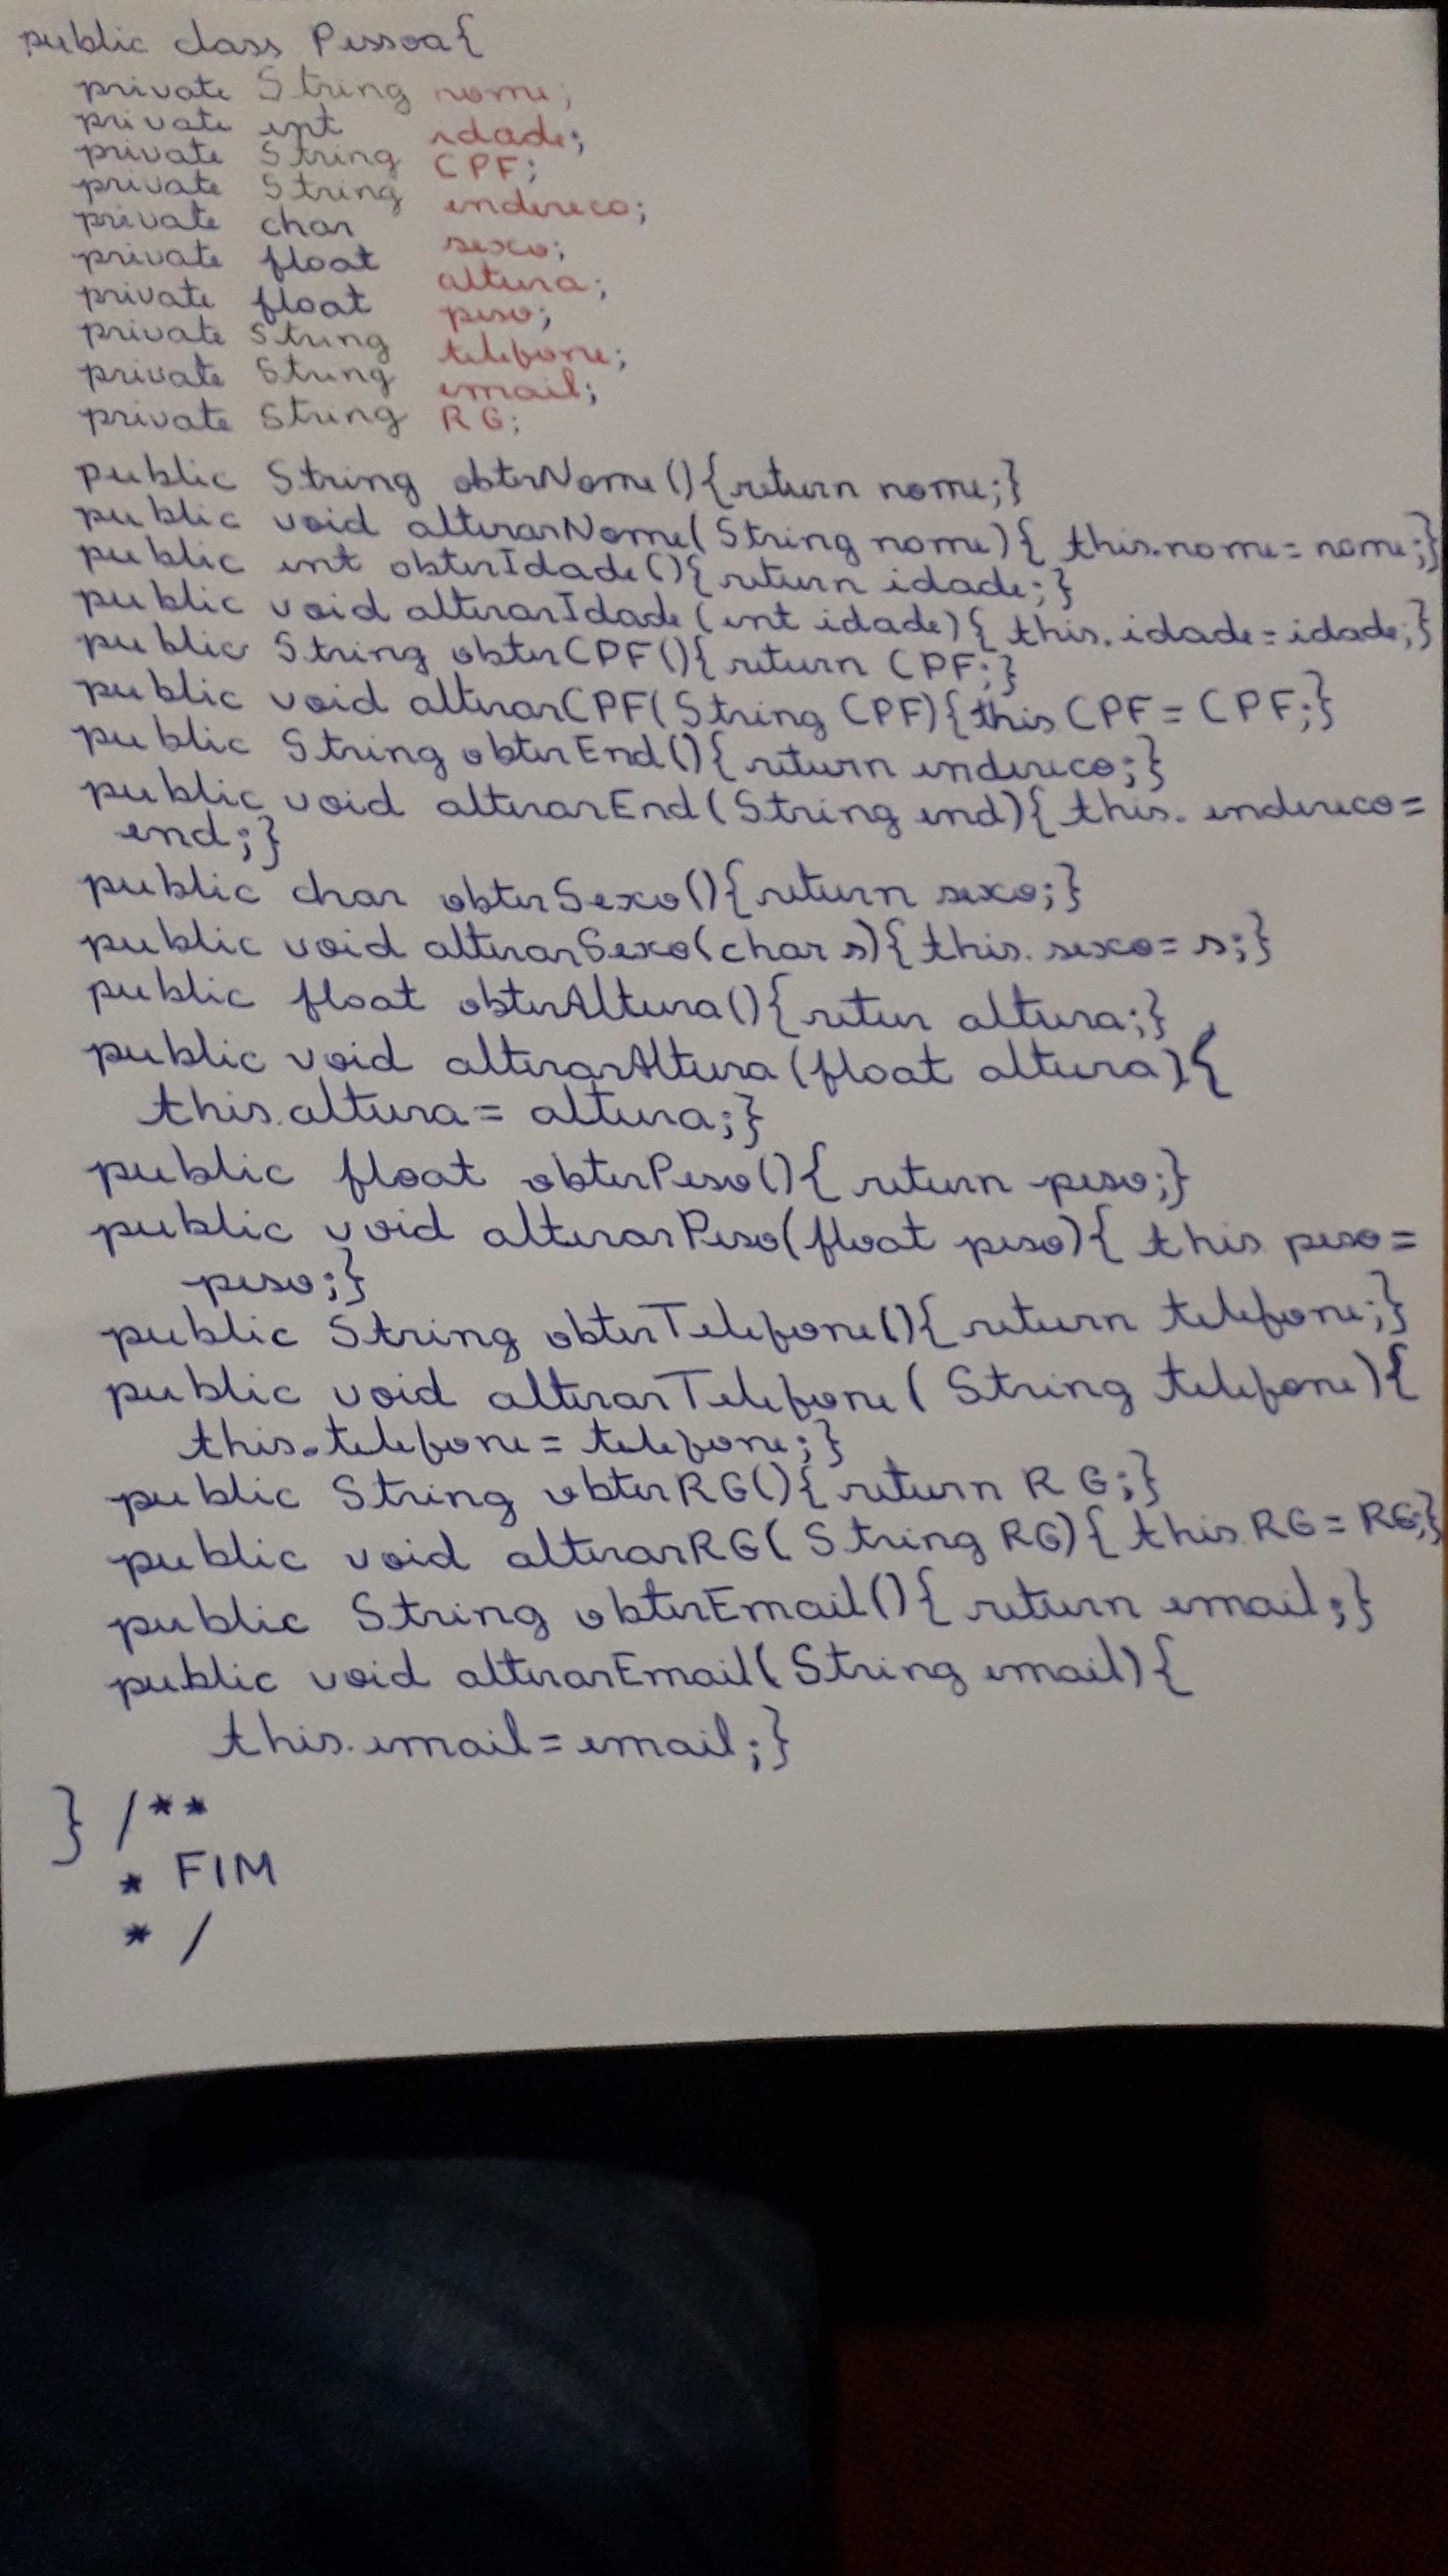 public class Pessoa{
private String nome;
private int idade;
private String CPF;
private String endereco;
private char sexo;
private float altura;
private float peso;
private String telefone;
private String email;
private String RG;
public String obterNome(){return nome;}
public void alterarNome(String nome){ this.nome=nome;}
public int obterIdade(){return idade;}
public void alterarIdade(int idade){ this.idade=idade;}
public String obterCPF(){return CPF;}
public void alterarCPF(String CPF){this CPF=CPF;}
public String obterEnd(){return endereco;}
public void alterarEnd(String end){this. endereco=
end;}
public char obterSexo(){return sexo;}
public void alterarSexo(char s){this. sexo=s;}
public float obterAltura(){retur altura;}
public void alterarAltura(float altura){
this.altura= altura;}
public float obterPeso(){return peso;}
public void alterarPeso(float peso){ this peso=
peso;}
public String obterTelefone(){return telefone;}
public void alterarTelefone( String telefone){
this.telefone= telefone;}
public String obterRG(){return RG;}
public void alterarRG( String RG){this.RG=RG;}
public String obterEmail(){return email;}
public void alterarEmail(String email){
this.email=email;}
} /**
* FIM
* /